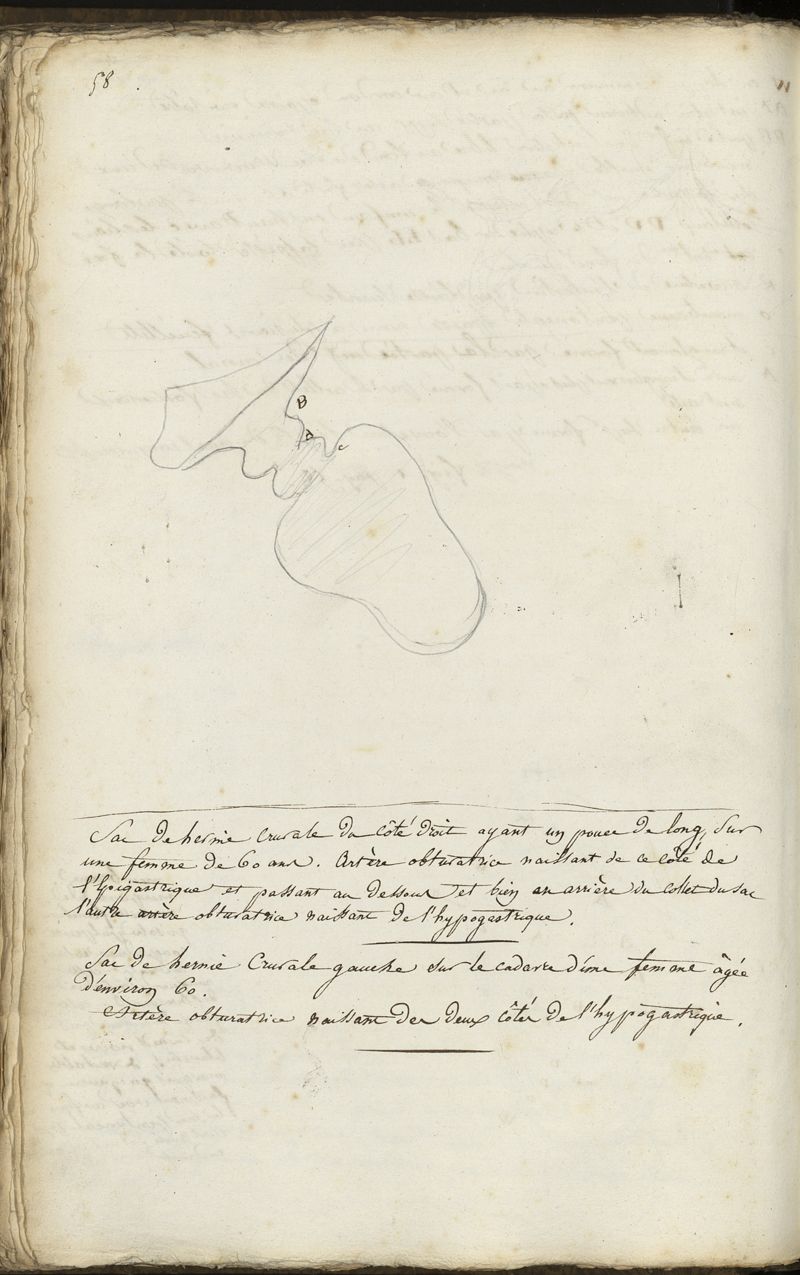 58
B
A
c
Sac de hernie crurale du côté droit ayant un pouce de long, sur
une femme de 60 ans. Artère obturatrice naissant de ce côté de
l'Epigastrique et passant au dessous et bien en arrière du collet du sac
l'autre artère obturatrice naissant de l'hypogastrique.
Sac de hernie Crurale gauche sur le cadavre d'une femme âgée
d'environ 60.
Artère obturatrice naissant des deux côtés de l'hypogastrique.